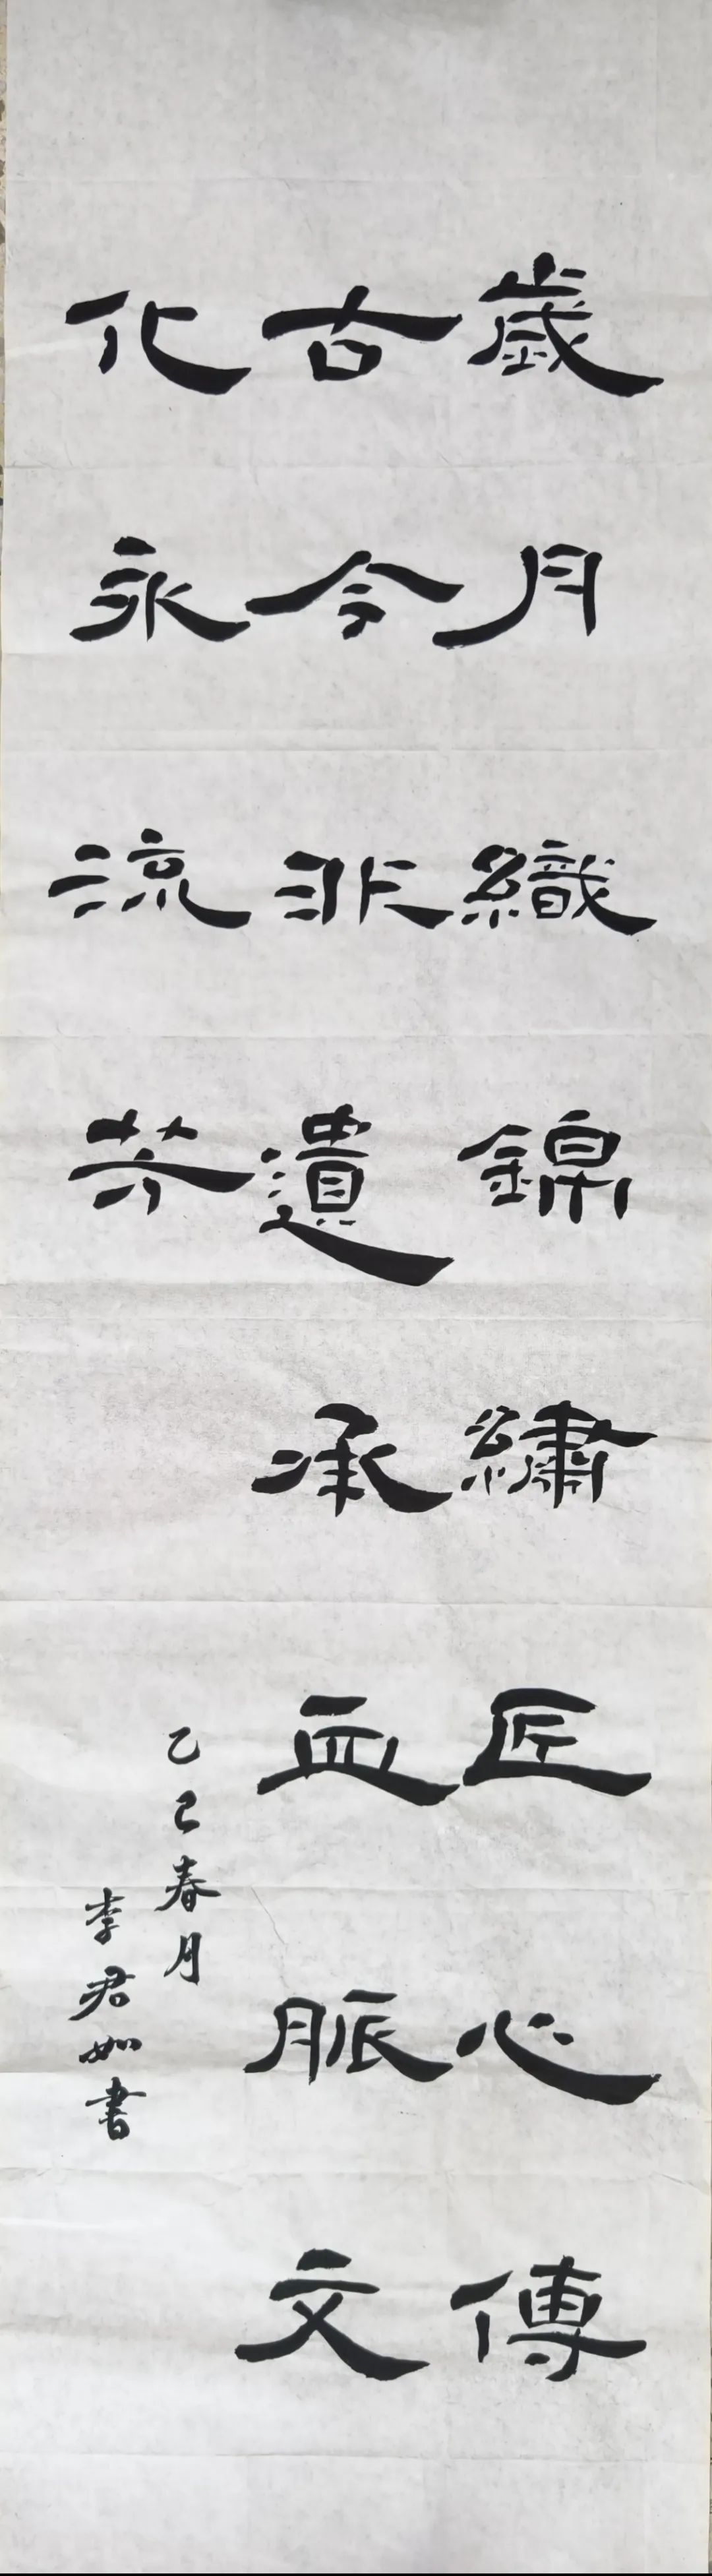 歲月織錦繡匠心傳
古今非遺承血脈文
化永流芳
乙巳春月
李君如書